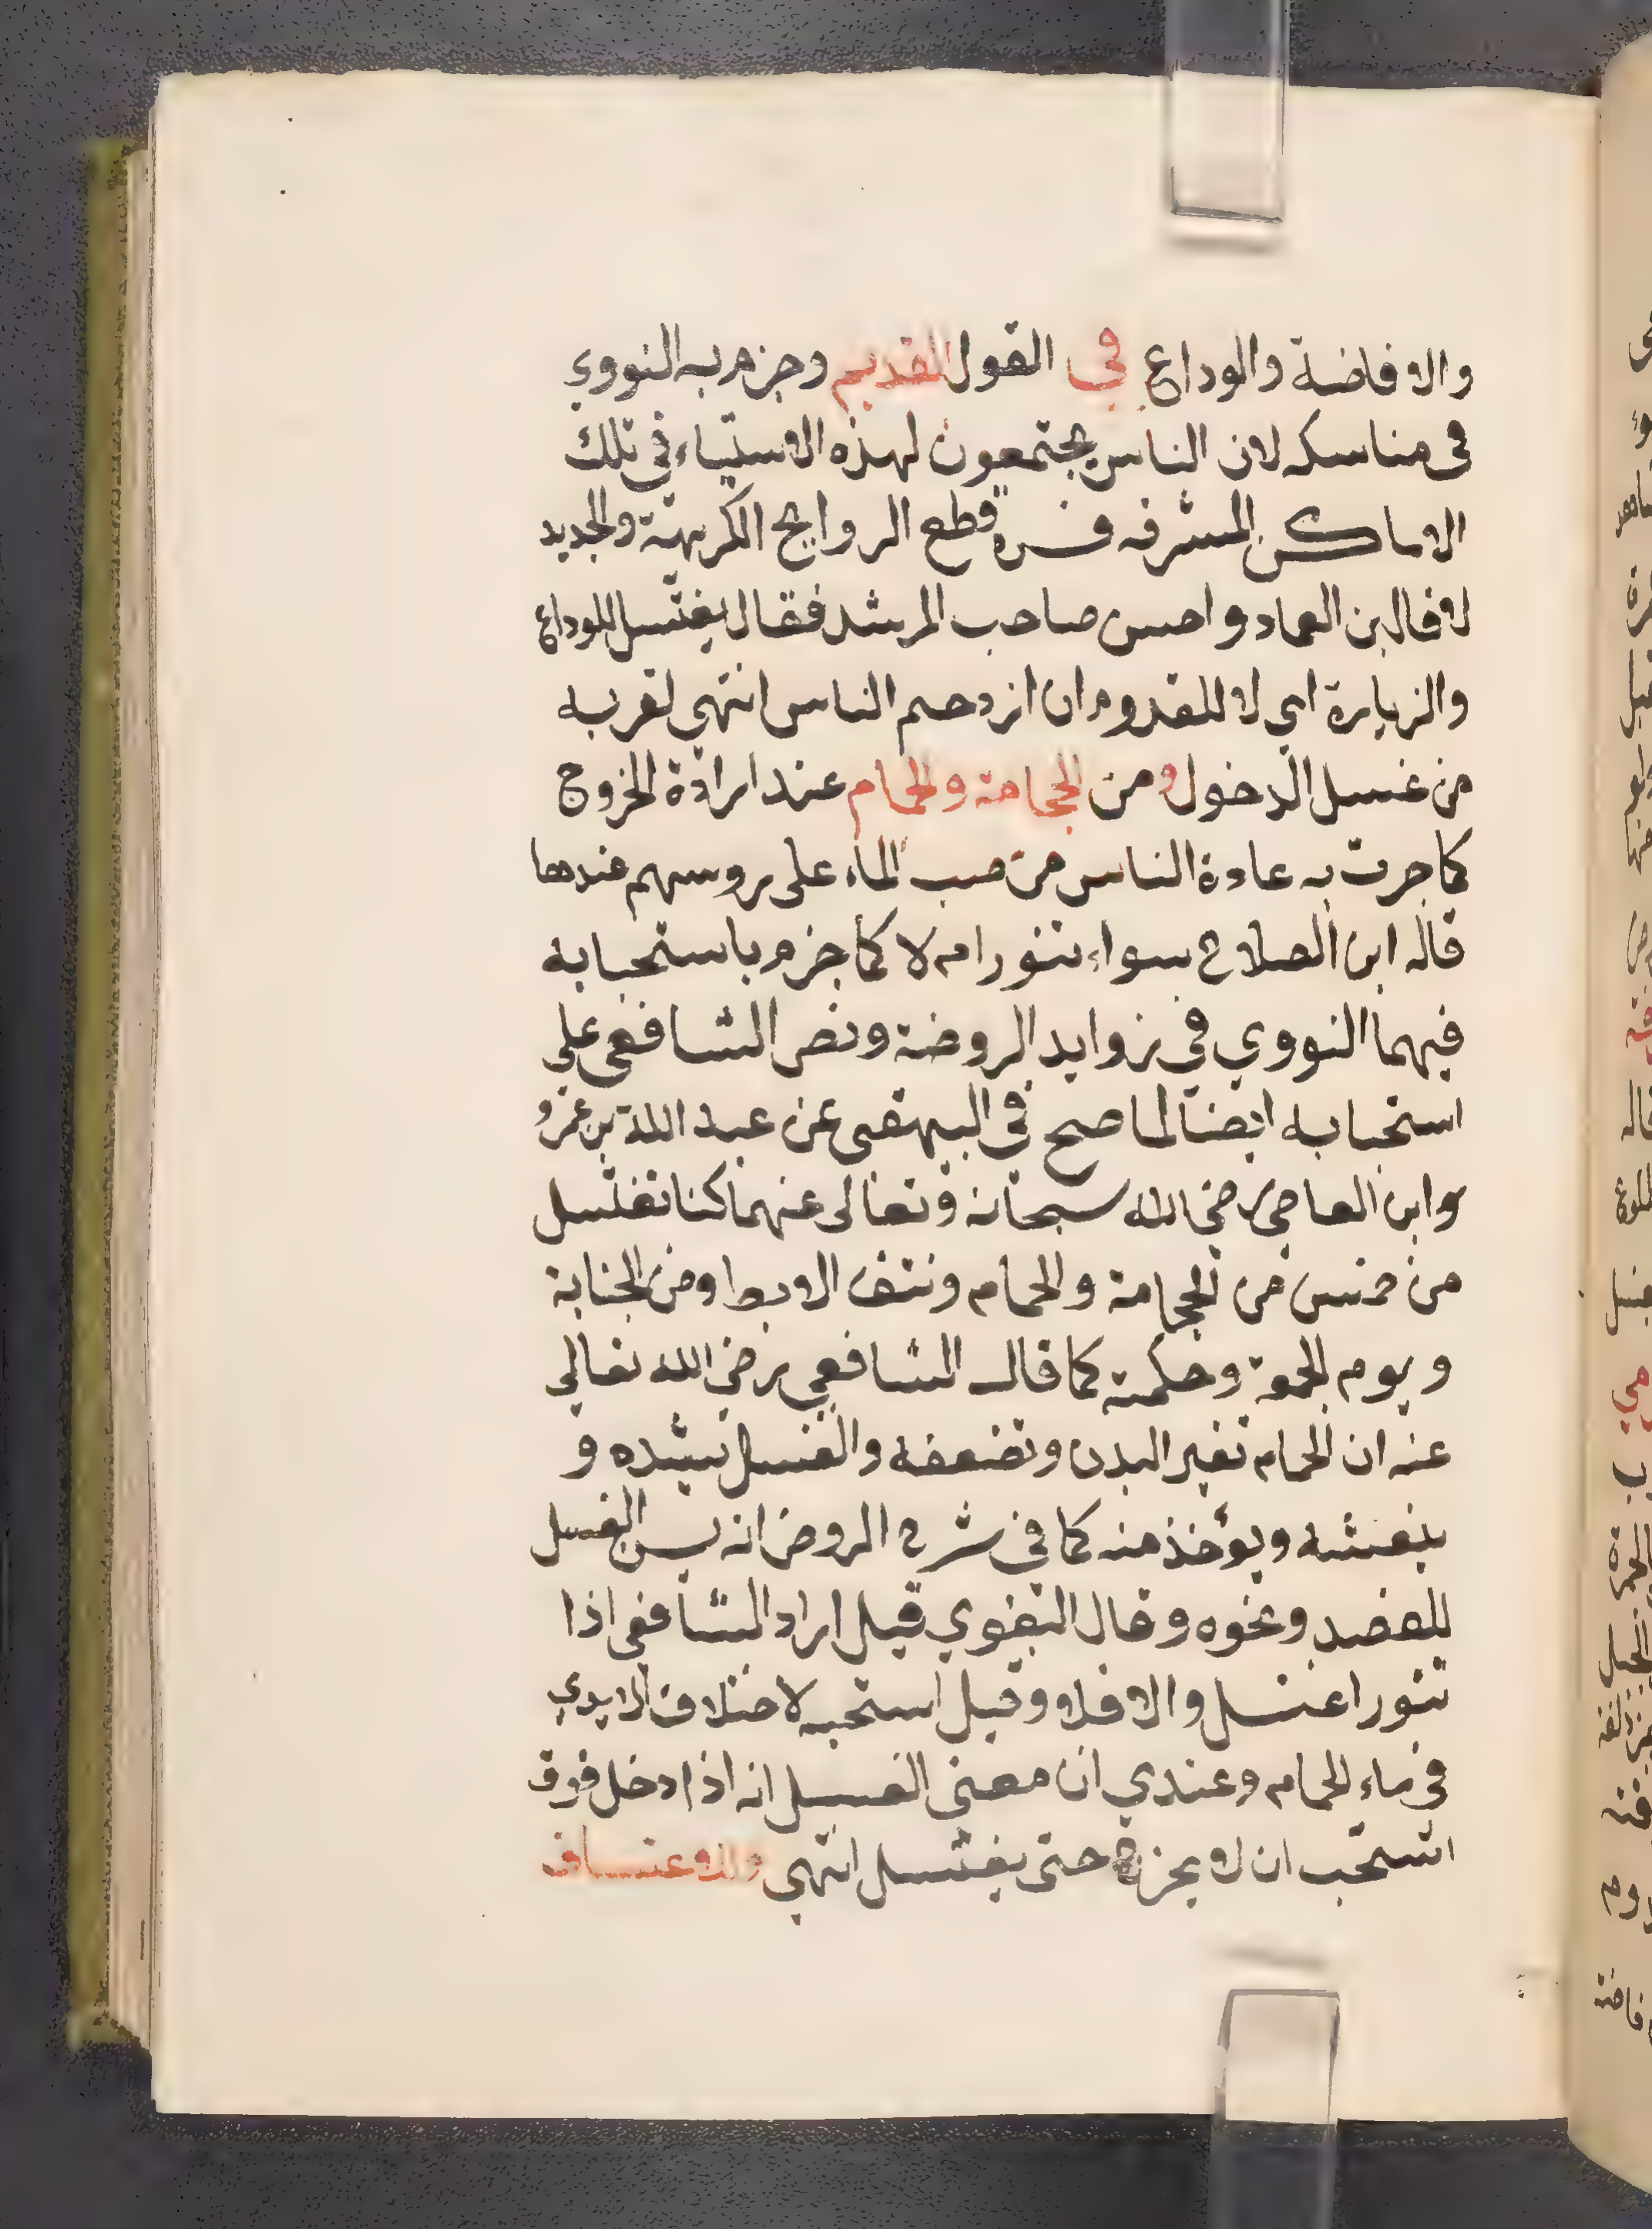 والافاضة والوداع في القول القديم وجزم به النووي
فى مناسكه لان الناس يجتمعون لهذه الاشياء في تلك
الاماكن المشرفه فسن قطع الروايح الكريهة والجديد
لا قال بن العماد واحسن صاحب المرشد فقال يغتسل للوداع
والزيارة اي لا للقدوم ان ازدحم الناس انتهي لقربه
من غسل الدخول ومن الحجامة والحمام عند ارادة الخروج
كما جرت به عادة الناس من صب الماء على روسهم عندها
قاله ابن الصلاح سواء تنور ام لا كما جزم باستحبابه
فيهما النووي في زوايد الروضة ونص الشافعي علي
استحبابه ايضا لما صح في البيهقى عن عبد الله بن عمرو
وابن العاصي رضي الله سبحانه وتعالى عنهما كنا نغتسل
من خمس من الحجامة والحمام ونتف الابط ومن الجنابة
ويوم الجمعة وحكمته كما قال الشافعي رضي الله تعالي
عنه ان الحمام تغير البدن وتضعفه والغسل يشده و
ينعشه ويؤخذ منه كما في شرح الروض انه يسن الغسل
للفصد ونحوه وقال البغوي قيل اراد الشافعى اذا
تنور اغتسل والا فلا وقيل استحبه لاختلاف الايدي
في ماء الحمام وعندي ان معنى الغسل انه اذا دخل فعرق
استحب ان لا يخرج حتى يغتسل انتهي ولاعتكاف